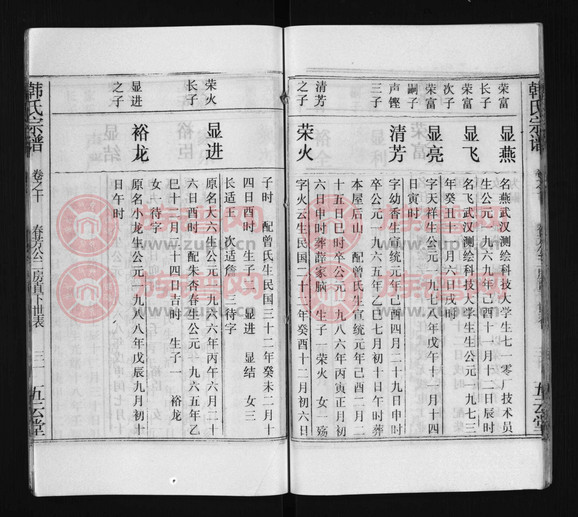 韩氏宗谱
五云堂
荣富长子
显燕
名燕武汉测绘科技大学生七一零厂技术员
生公元一九六九年己酉十一月十二日辰时
荣富次子
显飞
名飞武汉测绘科技大学生生公元一九七三
年癸丑一月六日戌时
荣富嗣子
显亮
字天祥生公元一九七八年戊午十一月十四
日寅时
声铿三子
清芳
字幼香生宣统元年己酉四月二十九日申时
卒公元一九六五年乙巳七月初十日午时葬
本屋后山 配曾氏生宣统元年己酉二月二
十五日巳时卒公元一九八六年丙寅正月初
六日申时葬薛家脑 生子一荣火 女一殇
清芳之子
荣火
字火云生民国二十二年癸酉十二月初六日
子时 配曾氏生民国三十二年癸未二月十
四日酉时 生子二 显进 显结 女三
长适王 次适詹 三待字
荣火长子
显进
原名大六生公元一九六六年丙午六月二十
六日酉时 配朱杏春生公元一九六五年乙
巳十一月三十四日吉时 生子一 裕龙
女一待字
显进之子
裕龙
原名小龙生公元一九八八年戊辰九月初十
日午时
韩氏宗谱
卷之十
春芳公二房真下世表
三
五云堂
族谱网
www.zupu.cn